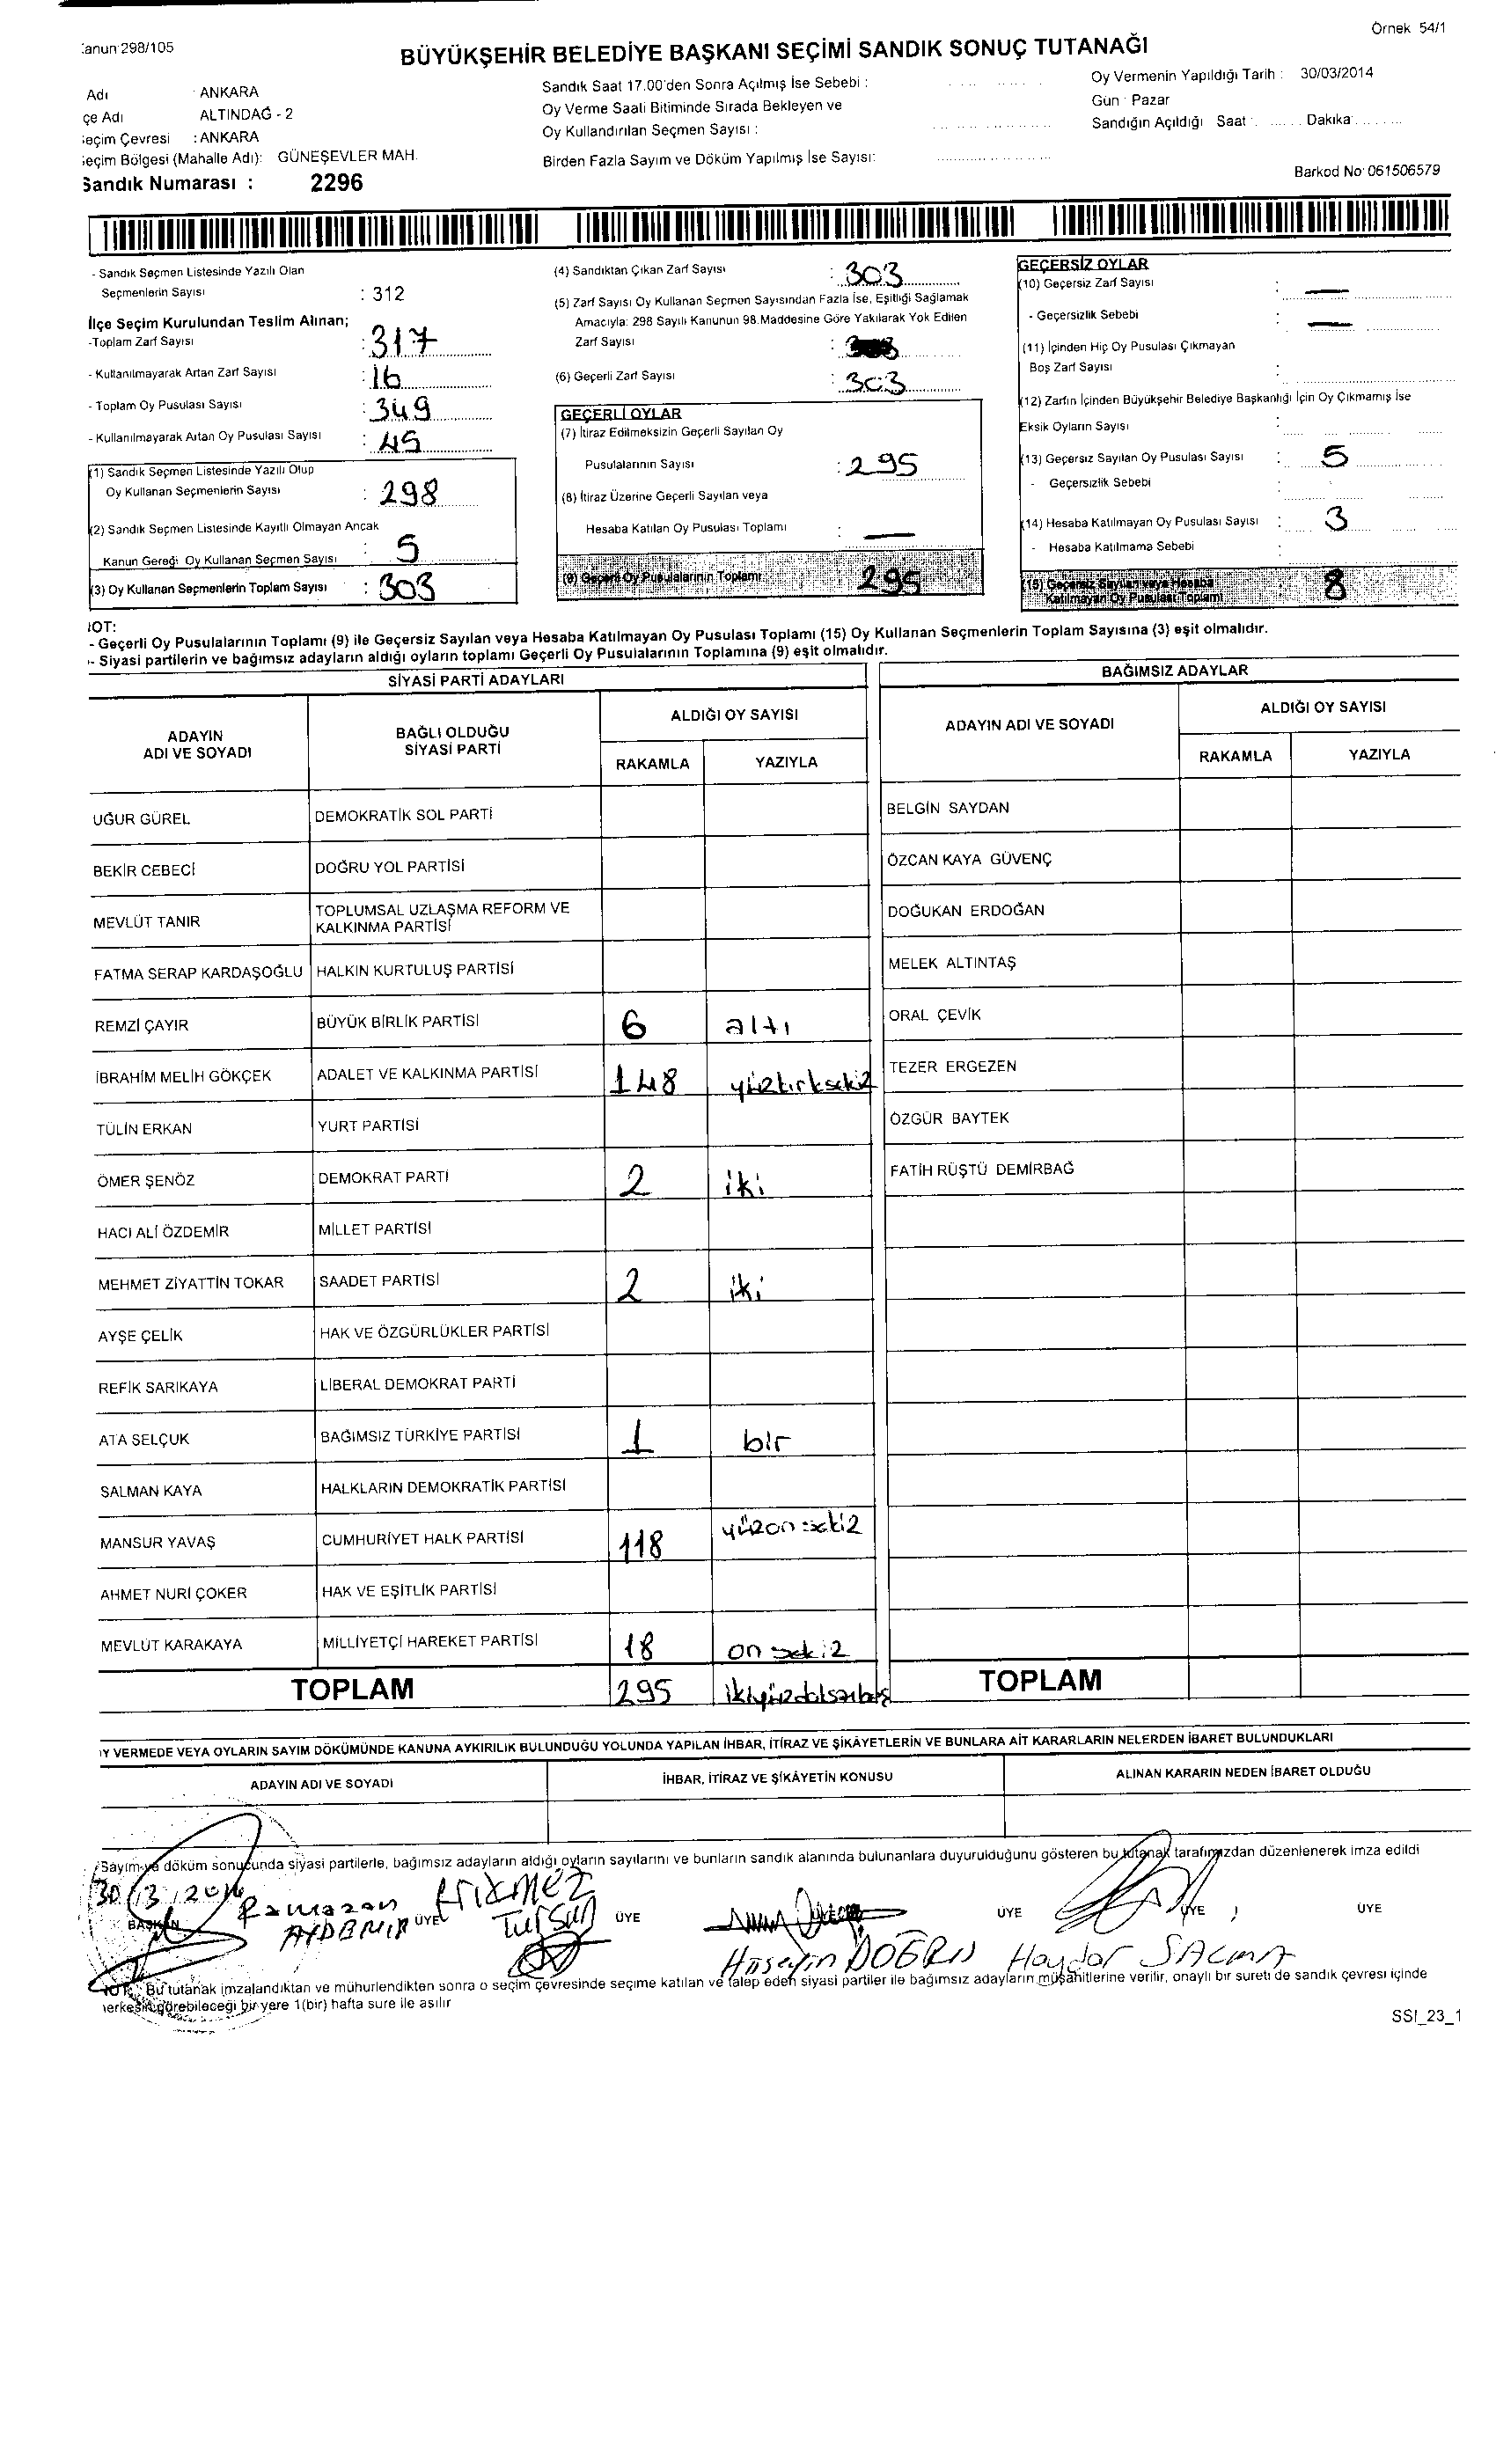 Örnek 54/1
anun 298/105
BÜYÜKŞEHİR BELEDİYE BAŞKANI SEÇİMİ SANDIK SONUÇ TUTANAĞI
Adı : ANKARA
çe Adı ALTINDAĞ - 2
eçim Çevresi : ANKARA
eçim Bölgesi (Mahalle Adı): GÜNEŞEVLER MAH.
Sandık Numarası : 2296
Sandık Saat 17.00'den Sonra Açılmış İse Sebebi :
Oy Verme Saati Bitiminde Sırada Bekleyen ve
Oy Kullandırılan Seçmen Sayısı :
Birden Fazla Sayım ve Döküm Yapılmış İse Sayısı:
Oy Vermenin Yapıldığı Tarih : 30/03/2014
Gün : Pazar
Sandığın Açıldığı Saat : ...... Dakika: ......
Barkod No: 061506579
- Sandık Seçmen Listesinde Yazılı Olan
Seçmenlerin Sayısı : 312
İlçe Seçim Kurulundan Teslim Alınan;
-Toplam Zarf Sayısı : 317
- Kullanılmayarak Artan Zarf Sayısı : 16
- Toplam Oy Pusulası Sayısı : 349
- Kullanılmayarak Artan Oy Pusulası Sayısı : 45
(1) Sandık Seçmen Listesinde Yazılı Olup
Oy Kullanan Seçmenlerin Sayısı : 298
(2) Sandık Seçmen Listesinde Kayıtlı Olmayan Ancak
Kanun Gereği Oy Kullanan Seçmen Sayısı : 5
(3) Oy Kullanan Seçmenlerin Toplam Sayısı : 303
(4) Sandıktan Çıkan Zarf Sayısı : 303
(5) Zarf Sayısı Oy Kullanan Seçmen Sayısından Fazla İse, Eşitliği Sağlamak
Amacıyla: 298 Sayılı Kanunun 98.Maddesine Göre Yakılarak Yok Edilen
Zarf Sayısı :
(6) Geçerli Zarf Sayısı : 303
GEÇERLİ OYLAR
(7) İtiraz Edilmeksizin Geçerli Sayılan Oy
Pusulalarının Sayısı : 295
(8) İtiraz Üzerine Geçerli Sayılan veya
Hesaba Katılan Oy Pusulası Toplamı : —
(9) Geçerli Oy Pusulalarının Toplamı 295
GEÇERSİZ OYLAR
(10) Geçersiz Zarf Sayısı : —
- Geçersizlik Sebebi : —
(11) İçinden Hiç Oy Pusulası Çıkmayan
Boş Zarf Sayısı :
(12) Zarfın İçinden Büyükşehir Belediye Başkanlığı İçin Oy Çıkmamış İse
Eksik Oyların Sayısı :
(13) Geçersiz Sayılan Oy Pusulası Sayısı : 5
- Geçersizlik Sebebi :
(14) Hesaba Katılmayan Oy Pusulası Sayısı : 3
- Hesaba Katılmama Sebebi :
(15) Geçersiz Sayılan veya Hesaba
Katılmayan Oy Pusulası Toplamı 8
IOT:
- Geçerli Oy Pusulalarının Toplamı (9) ile Geçersiz Sayılan veya Hesaba Katılmayan Oy Pusulası Toplamı (15) Oy Kullanan Seçmenlerin Toplam Sayısına (3) eşit olmalıdır.
- Siyasi partilerin ve bağımsız adayların aldığı oyların toplamı Geçerli Oy Pusulalarının Toplamına (9) eşit olmalıdır.
SİYASİ PARTİ ADAYLARI
ADAYIN ADI VE SOYADI BAĞLI OLDUĞU SİYASİ PARTİ ALDIĞI OY SAYISI
RAKAMLA YAZIYLA
UĞUR GÜREL DEMOKRATİK SOL PARTİ
BEKİR CEBECİ DOĞRU YOL PARTİSİ
MEVLÜT TANIR TOPLUMSAL UZLAŞMA REFORM VE KALKINMA PARTİSİ
FATMA SERAP KARDAŞOĞLU HALKIN KURTULUŞ PARTİSİ
REMZİ ÇAYIR BÜYÜK BİRLİK PARTİSİ 6 altı
İBRAHİM MELİH GÖKÇEK ADALET VE KALKINMA PARTİSİ 148 yüzkırksekiz
TÜLİN ERKAN YURT PARTİSİ
ÖMER ŞENÖZ DEMOKRAT PARTİ 2 iki
HACI ALİ ÖZDEMİR MİLLET PARTİSİ
MEHMET ZİYATTİN TOKAR SAADET PARTİSİ 2 iki
AYŞE ÇELİK HAK VE ÖZGÜRLÜKLER PARTİSİ
REFİK SARIKAYA LİBERAL DEMOKRAT PARTİ
ATA SELÇUK BAĞIMSIZ TÜRKİYE PARTİSİ 1 bir
SALMAN KAYA HALKLARIN DEMOKRATİK PARTİSİ
MANSUR YAVAŞ CUMHURİYET HALK PARTİSİ 118 yüzonsekiz
AHMET NURİ ÇOKER HAK VE EŞİTLİK PARTİSİ
MEVLÜT KARAKAYA MİLLİYETÇİ HAREKET PARTİSİ 18 on sekiz
TOPLAM 295 ikiyüzdoksanbeş
BAĞIMSIZ ADAYLAR
ADAYIN ADI VE SOYADI ALDIĞI OY SAYISI
RAKAMLA YAZIYLA
BELGİN SAYDAN
ÖZCAN KAYA GÜVENÇ
DOĞUKAN ERDOĞAN
MELEK ALTINTAŞ
ORAL ÇEVİK
TEZER ERGEZEN
ÖZGÜR BAYTEK
FATİH RÜŞTÜ DEMİRBAĞ
TOPLAM
Y VERMEDE VEYA OYLARIN SAYIM DÖKÜMÜNDE KANUNA AYKIRILIK BULUNDUĞU YOLUNDA YAPILAN İHBAR, İTİRAZ VE ŞİKÂYETLERİN VE BUNLARA AİT KARARLARIN NELERDEN İBARET BULUNDUKLARI
ADAYIN ADI VE SOYADI İHBAR, İTİRAZ VE ŞİKÂYETİN KONUSU ALINAN KARARIN NEDEN İBARET OLDUĞU
Sayım ve döküm sonucunda siyasi partilerle, bağımsız adayların aldığı oyların sayılarını ve bunların sandık alanında bulunanlara duyurulduğunu gösteren bu tutanak tarafımızdan düzenlenerek imza edildi
30/3/2014
BAŞKAN Ramazan ÜYE Tursun ÜYE ÜYE ÜYE ÜYE
Hüseyin DOĞRU Haydar
NOT: Bu tutanak imzalandıktan ve mühürlendikten sonra o seçim çevresinde seçime katılan ve talep eden siyasi partiler ile bağımsız adayların müşahitlerine verilir, onaylı bir sureti de sandık çevresi içinde
herkesin görebileceği bir yere 1(bir) hafta süre ile asılır
SSI_23_1